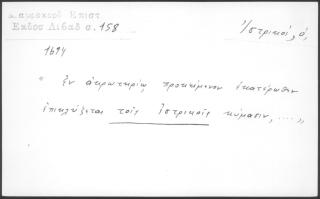 Καισαρίου Επιστ
Εκδοσ Λιβαδ σ.158
Ἰστρικός, ὁ,
1694
" Ἐν ἀκρωτηρίῳ προκείμενον ἑκατέρωθεν
ἐπικλύζεται τοῖς Ἰστρικοῖς κύμασιν, ..."